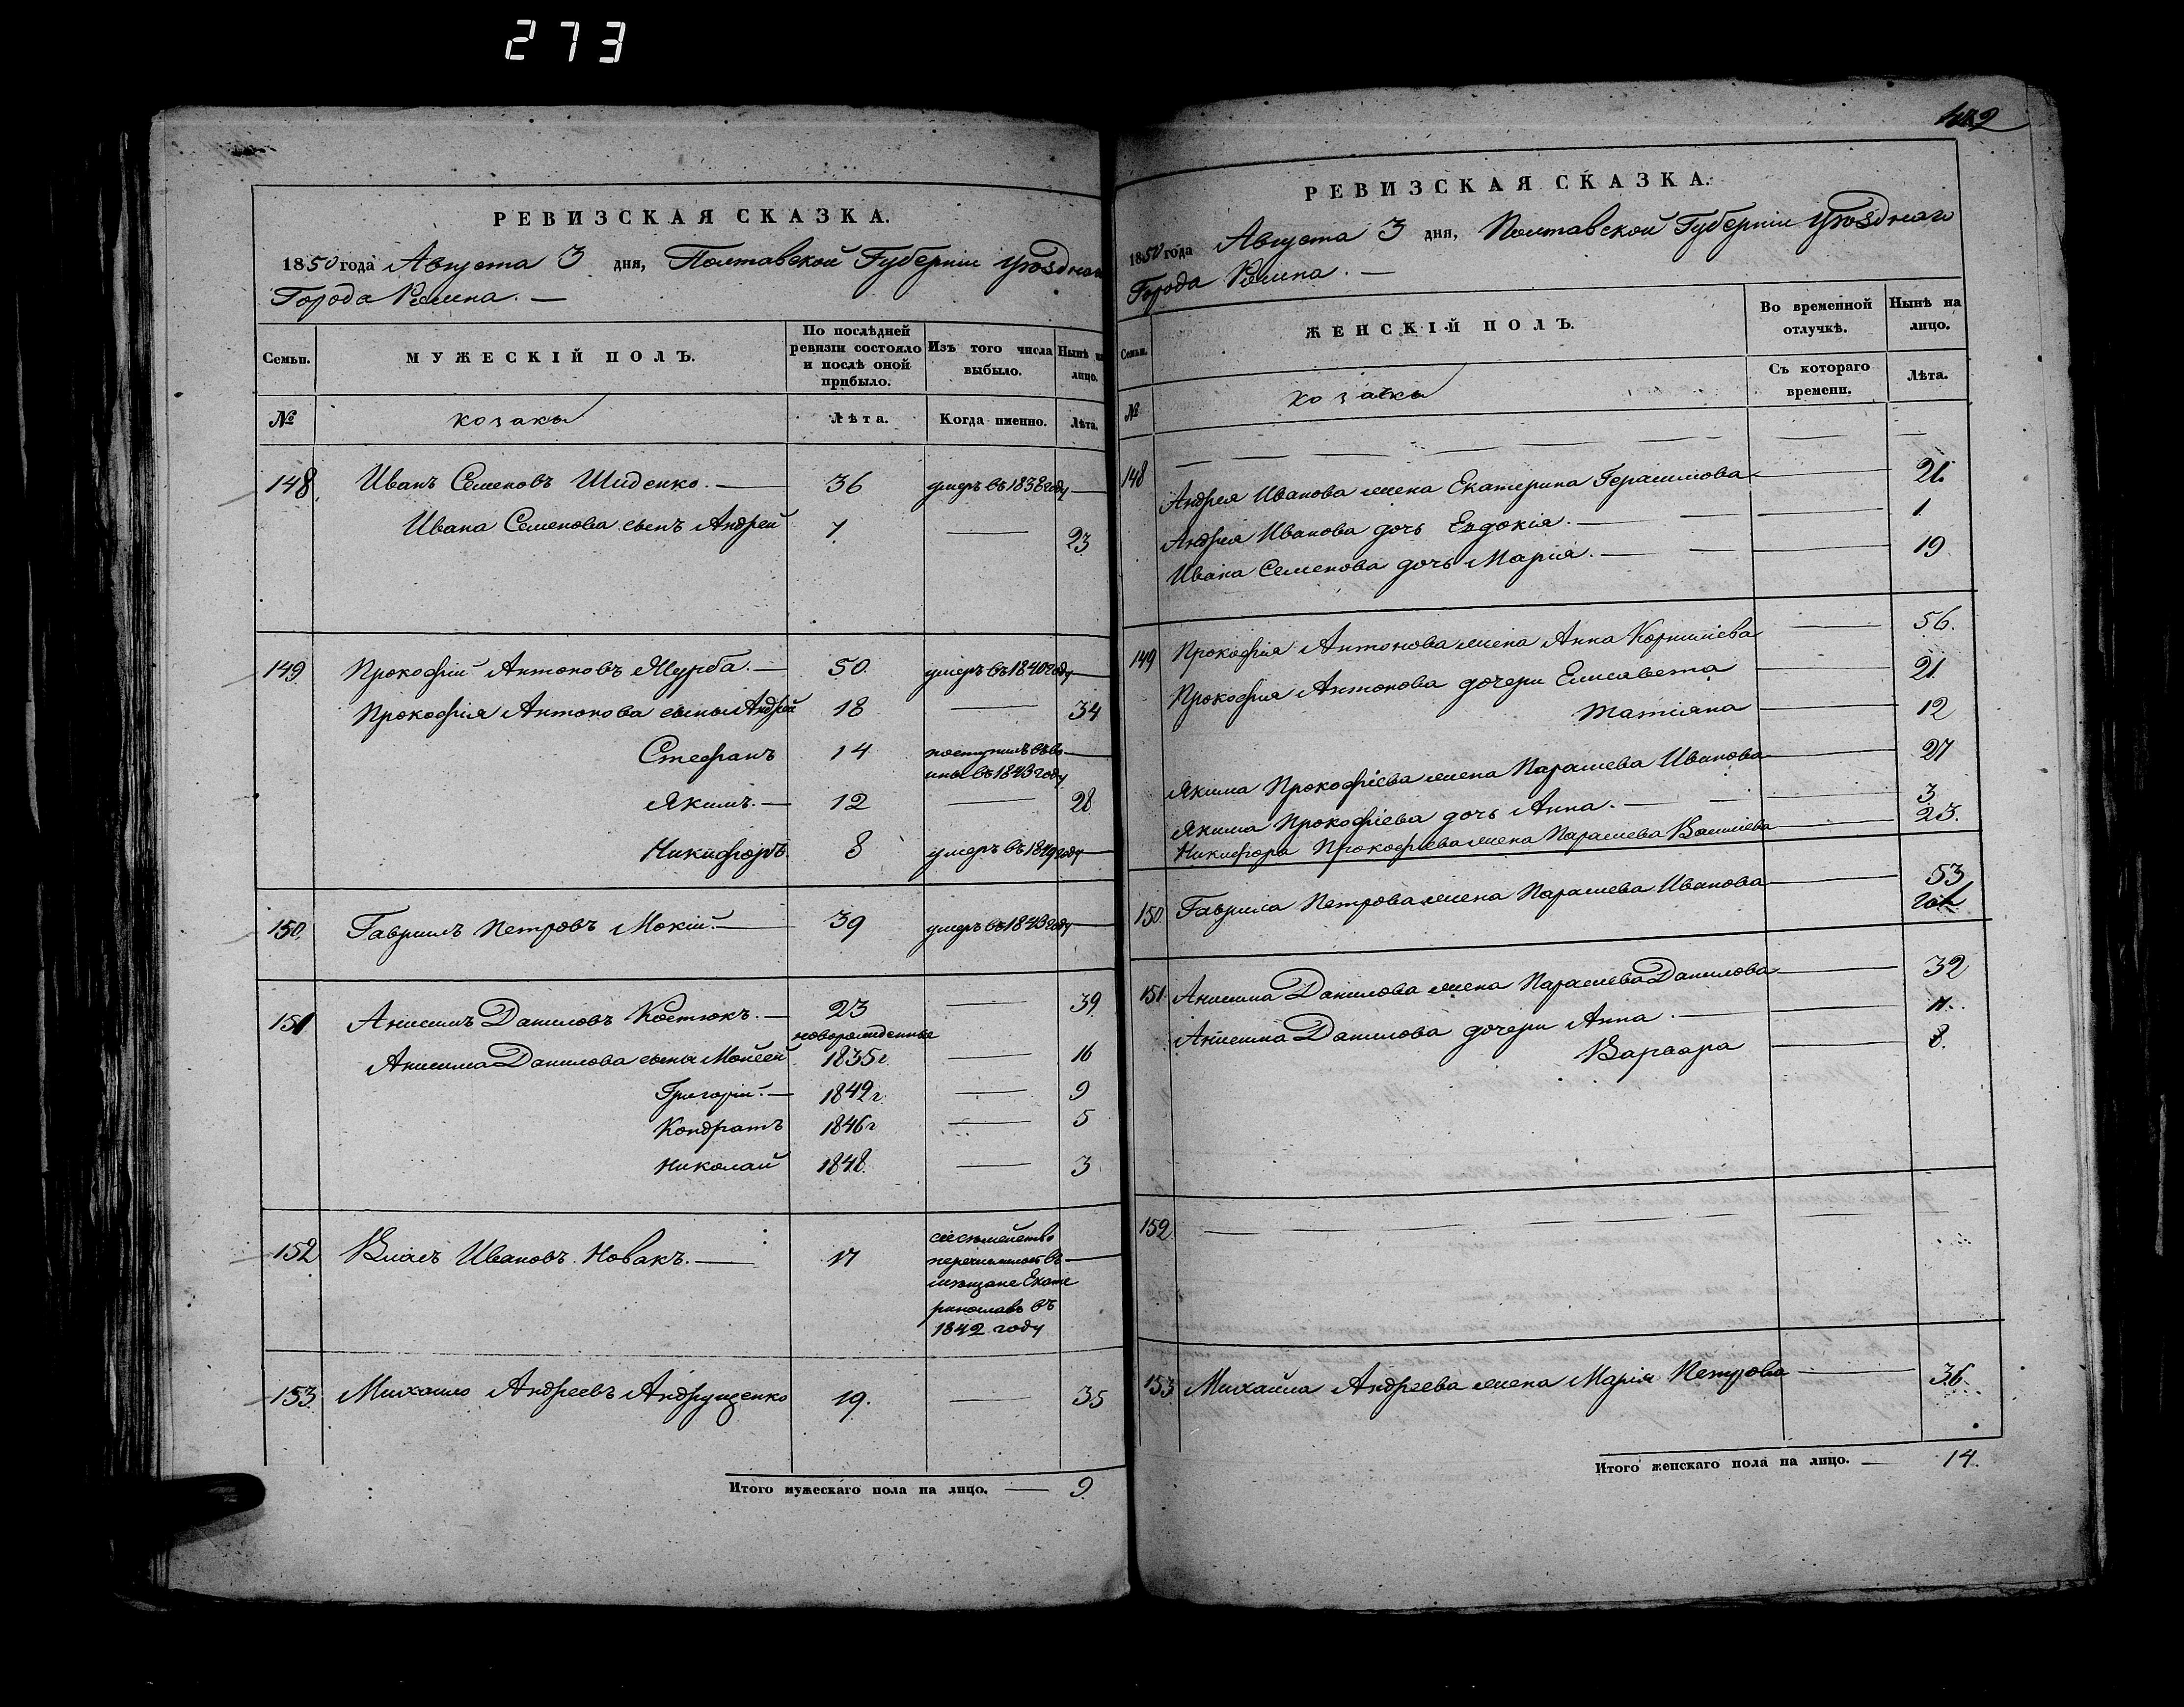 273
РЕВИЗСКАЯ СКАЗКА.
1850 года Августа 3 дня, Полтавской Губерніи Уѣзднаго
Города Ромна. —
Семьи. МУЖЕСКІЙ ПОЛЪ. По послѣдней ревизіи состояло и послѣ оной прибыло. Изъ того числа выбыло. Нынѣ на лицо.
№ козаки Лѣта. Когда именно. Лѣта.
148. Иванъ Семеновъ Шиденко. — 36 умеръ въ 1838 году —
Ивана Семенова сынъ Андрей 7. — 23
149. Прокофій Антоновъ Журба. — 50. умеръ въ 1840 году —
Прокофія Антонова сыны Андрей 18 — 34
Стефанъ 14 поступилъ въ во
ины въ 1843 году —
Якимъ. — 12 — 28
Никифоръ. 8 умеръ въ 1849 году —
150. Гаврилъ Петровъ Мокій. — 39 умеръ въ 1843 году —
151 Анисимъ Даниловъ Костюкъ. — 23 — 39.
новорожденные
Анисима Данилова сыны Мойсей 1835 г. — 16
Григорій. — 1842 г. — 9
Кондратъ 1846 г — 5
Николай 1848. — 3
152 Власъ Ивановъ Новакъ. — 17 сіе семейство
перечислилось въ —
мѣщане Екате
ринославъ въ
1842 году
153. Михайло Андреевъ Андрущенко 19. — 35
Итого мужескаго пола на лицо. — 9.
РЕВИЗСКАЯ СКАЗКА.
1850 года Августа 3 дня, Полтавской Губерніи Уѣзднаго
Города Ромна. —
Семьи. ЖЕНСКІЙ ПОЛЪ. Во временной отлучкѣ. Нынѣ на лицо.
№ козачки Съ котораго времени. Лѣта.
148 Андрея Иванова жена Екатерина Герасимова — 21.
Андрея Иванова дочь Евдокія. — 1
Ивана Семенова дочь Марія. — 19
149 Прокофія Антонова жена Анна Корнилиева — 56.
Прокофія Антонова дочери Елисавета — 21.
Татіяна — 12
Якима Прокофіева жена Парасева Иванова — 27
Якима Прокофіева дочь Анна. — 3
Никифора Прокофіева жена Парасева Василіева — 23.
150. Гаврила Петрова жена Парасева Иванова — 53
151. Анисима Данилова жена Парасева Данилова — 32
Анисима Данилова дочери Анна. — 11.
Варвара — 8.
152
153 Михайла Андреева жена Марія Петрова — 36.
Итого женскаго пола на лицо. — 14.